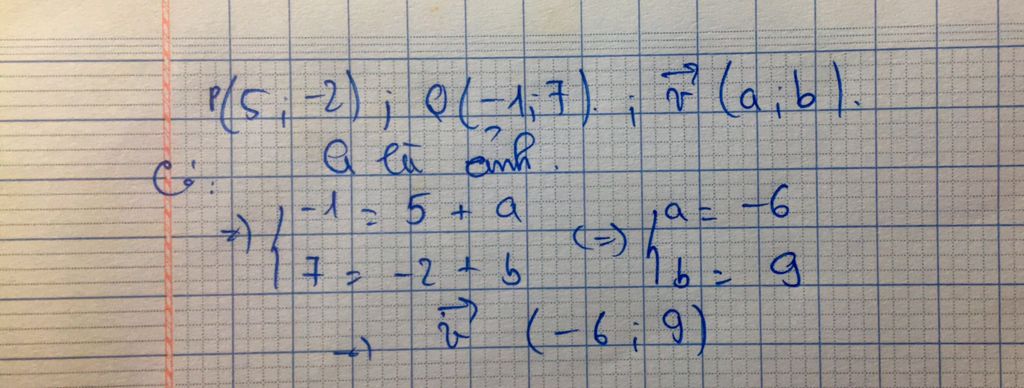 P(5 ; -2) ; Q(-1 ; 7). ; v⃗ (a ; b).
Có : Q là ảnh.
=> { -1 = 5 + a (=> { a = -6
7 = -2 + b b = 9
=> v⃗ (-6 ; 9)